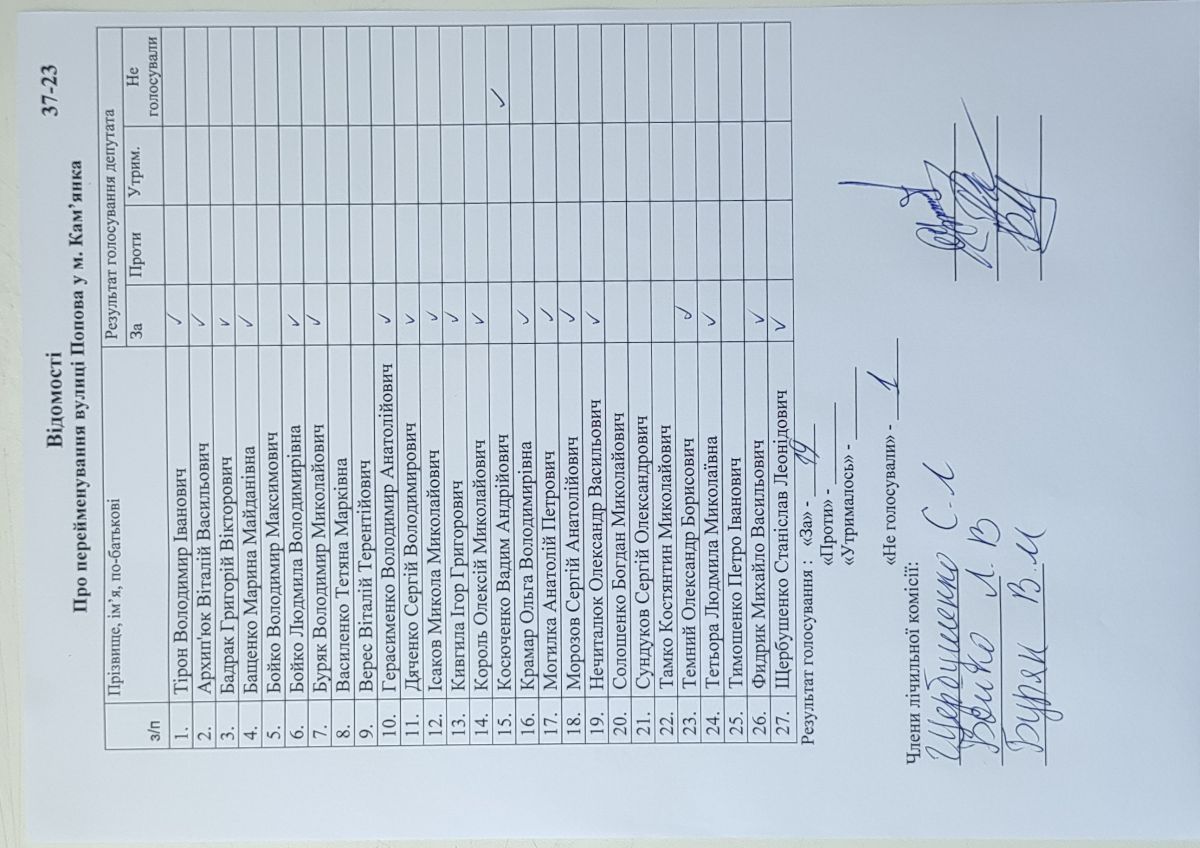 37-23
Відомості
Про перейменування вулиці Попова у м. Кам’янка
з/п Прізвище, ім’я, по-батькові Результат голосування депутата
За Проти Утрим. Не голосували
1. Тірон Володимир Іванович ✓
2. Архип'юк Віталій Васильович ✓
3. Бадрак Григорій Вікторович ✓
4. Бащенко Марина Майданівна ✓
5. Бойко Володимир Максимович
6. Бойко Людмила Володимирівна ✓
7. Буряк Володимир Миколайович ✓
8. Василенко Тетяна Марківна
9. Верес Віталій Терентійович
10. Герасименко Володимир Анатолійович ✓
11. Дяченко Сергій Володимирович ✓
12. Ісаков Микола Миколайович ✓
13. Кивгила Ігор Григорович ✓
14. Король Олексій Миколайович ✓
15. Косюченко Вадим Андрійович ✓
16. Крамар Ольга Володимирівна ✓
17. Могилка Анатолій Петрович ✓
18. Морозов Сергій Анатолійович ✓
19. Нечиталюк Олександр Васильович ✓
20. Солошенко Богдан Миколайович
21. Сундуков Сергій Олександрович
22. Тамко Костянтин Миколайович
23. Темний Олександр Борисович ✓
24. Тетьора Людмила Миколаївна ✓
25. Тимошенко Петро Іванович
26. Фидрик Михайло Васильович ✓
27. Щербушенко Станіслав Леонідович ✓
Результат голосування : «За» - 19
«Проти» -
«Утрималось» -
«Не голосували» - 1
Члени лічильної комісії:
Щербушенко С.Л
Бойко Л. В
Буряк В.М